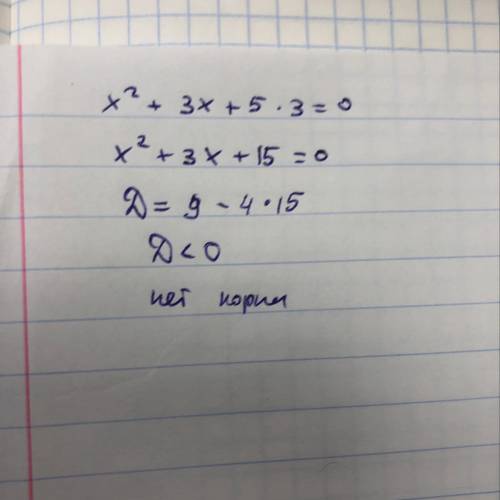 x² + 3x + 5 · 3 = 0
x² + 3x + 15 = 0
D = 9 - 4 · 15
D < 0
нет корни